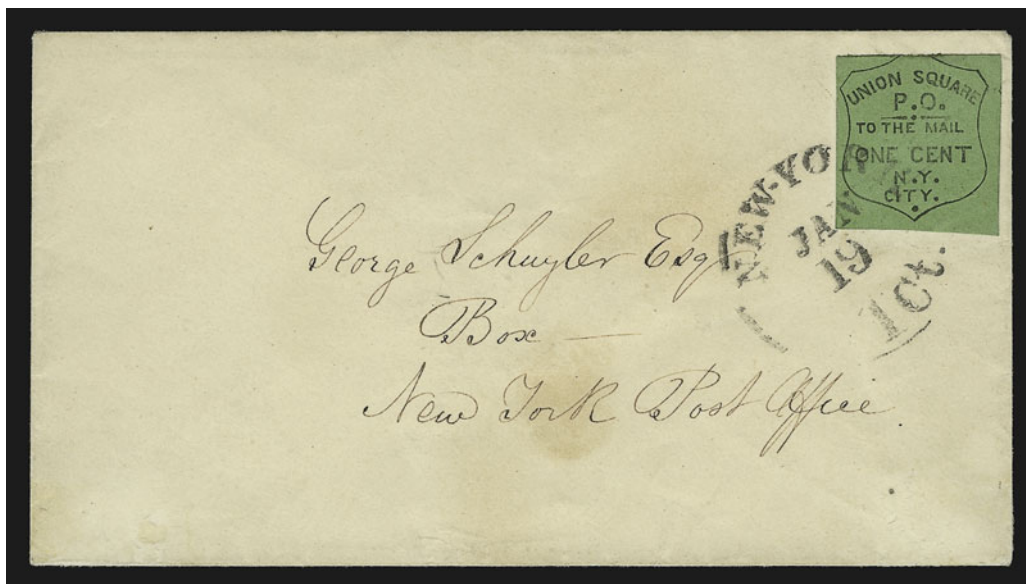 UNION SQUARE
P.O.
TO THE MAIL
ONE CENT
N.Y.
CITY.
NEW-YORK
JAN
19
1 Ct.
George Schuyler Esq
Box —
New York Post Office